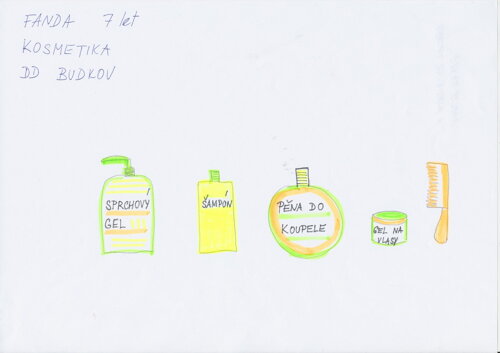 FANDA 7 let
KOSMETIKA
DD BUDKOV
SPRCHOVÝ
GEL
ŠAMPÓN
PĚNA DO
KOUPELE
GEL NA
VLASY